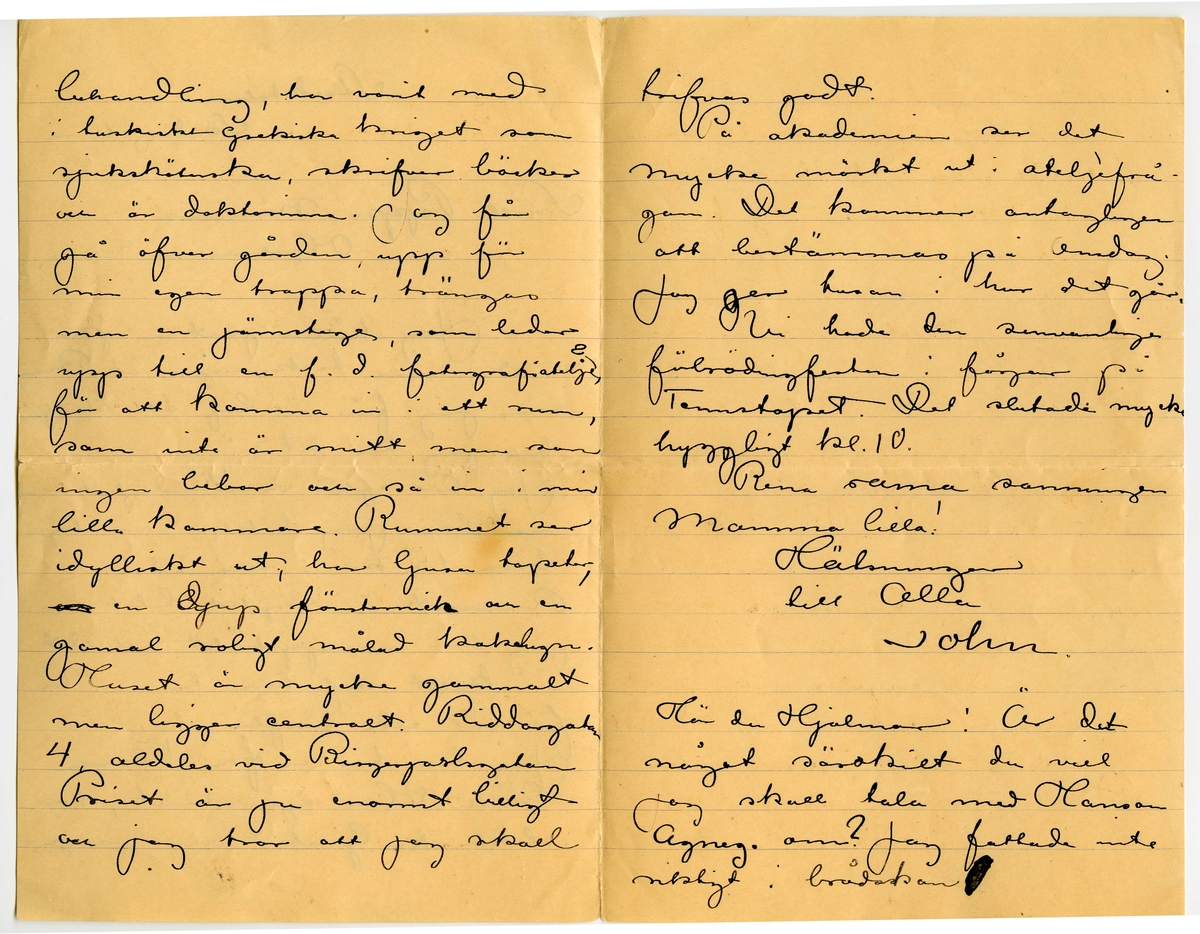 behandling, har varit med
i turkiskt Grekiska kriget som
sjuksköterska, skrifver böcker
och är doktorinna. Jag får
gå öfver gården, upp för
min egen trappa, trängas
men en järnstege, som leder
upp till en f. d. fotografiateljé,
för att komma in i ett rum,
som inte är mitt men som
ingen bebor och så in i min
lilla kammare. Rummet ser
idylliskt ut, har ljusa tapeter,
en djup fönsternich och en
gamal roligt målad kakelugn.
Huset är mycke gammalt
men ligger centralt. Riddargatan
4, aldeles vid Birgerjarlsgatan
Priset är ju enormt billigt
och jag tror att jag skall
trifvas godt.
På akademien ser det
mycke mörkt ut i ateljéfrå-
gan. Det kommer antagligen
att bestämmas på Onsdag.
Jag ger husan i hur det går.
Vi hade den sedvanliga
fölrödingfesten i förgår på
Tennstopet. Det slutade mycke
hyggligt kl. 10.
Rena rama sanningen
Mamma lilla!
Hälsningar
till Alla
John.
Hör du Hjalmar! Är det
något särskilt du vill
jag skall tala med Hanson
Agneg. om? Jag fattade inte
riktigt i brådskan